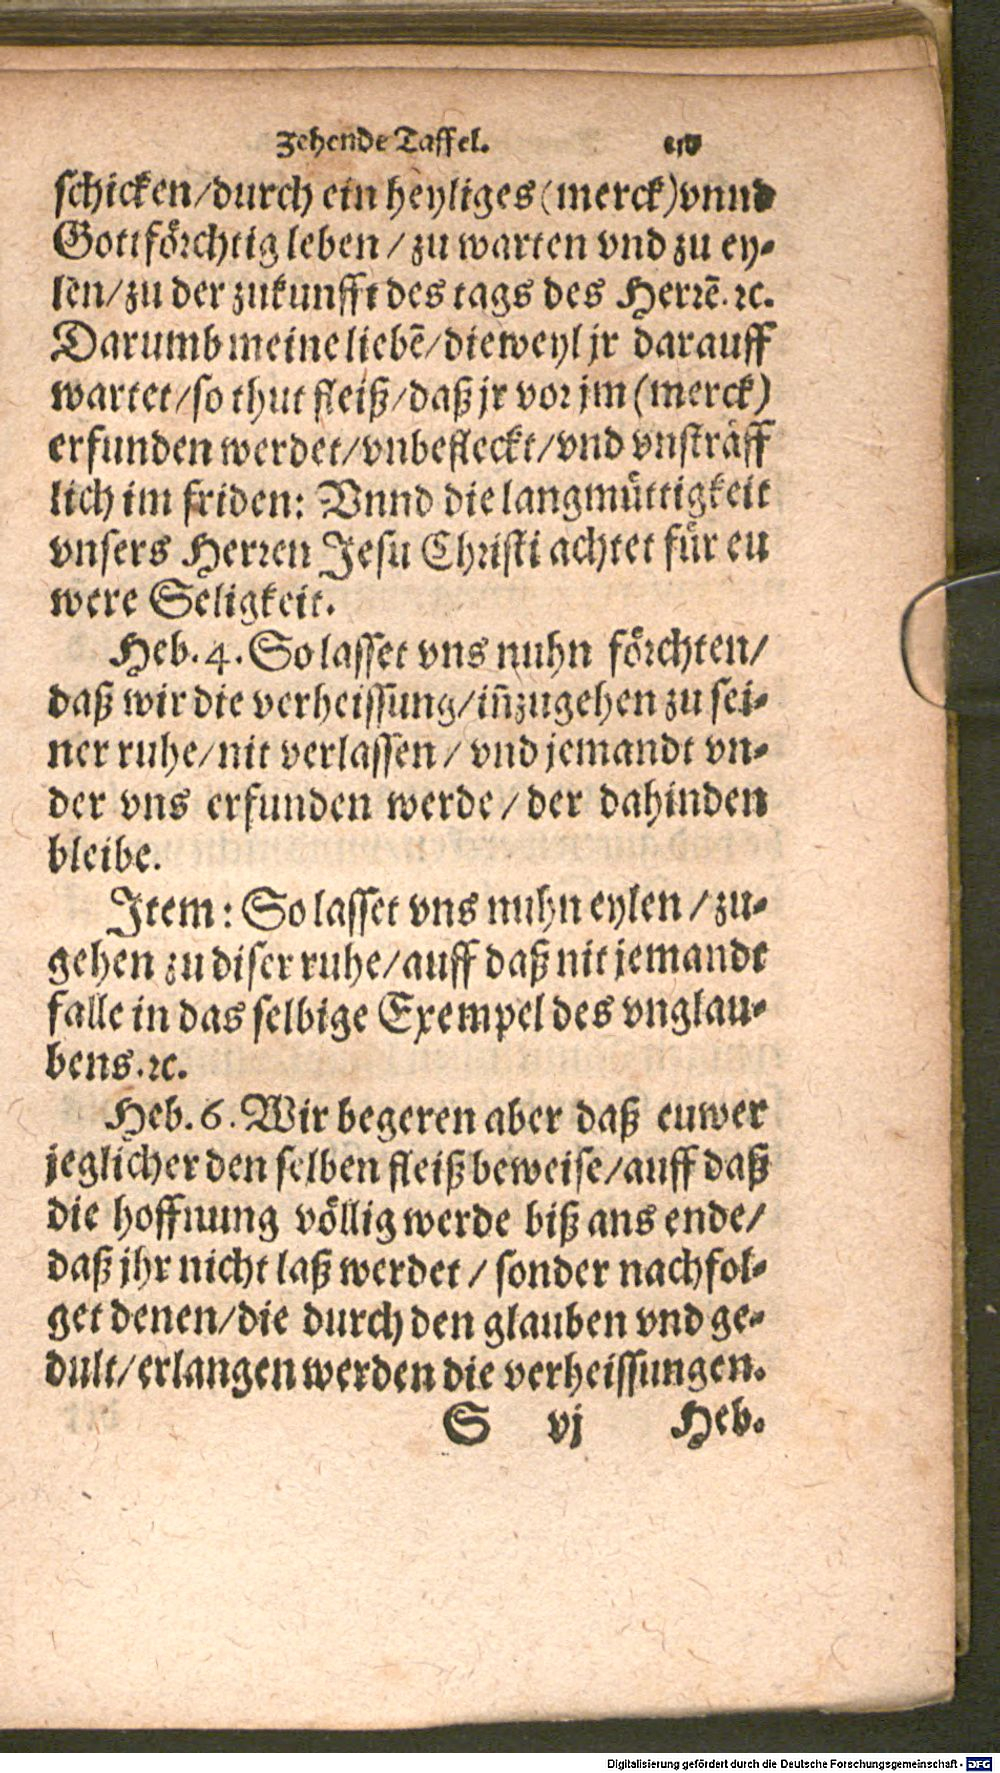 Zehende Taffel.
schicken/durch ein heyliges (merck) vnnd
Gottförchtig leben / zu warten vnd zu ey-
len/zu der zukunfft des tags des Herrē. ꝛc.
Darumb meine liebē/dieweyl jr darauff
wartet/so thut fleiß/daß jr vor jm (merck)
erfunden werdet/vnbefleckt/vnd vnsträff
lich im friden: Vnnd die langmüttigkeit
vnsers Herren Jesu Christi achtet für eu
were Seligkeit.
Heb. 4. So lasset vns nuhn förchten/
daß wir die verheissung/iñzugehen zu sei-
ner ruhe/nit verlassen / vnd jemandt vn-
der vns erfunden werde / der dahinden
bleibe.
Item: So lasset vns nuhn eylen / zu-
gehen zu diser ruhe/auff daß nit jemandt
falle in das selbige Exempel des vnglau-
bens. ꝛc.
Heb. 6. Wir begeren aber daß euwer
jeglicher den selben fleiß beweise/auff daß
die hoffnung völlig werde biß ans ende/
daß jhr nicht laß werdet / sonder nachfol-
get denen/die durch den glauben vnd ge-
dult/erlangen werden die verheissungen.
S vj Heb.
Digitalisierung gefördert durch die Deutsche Forschungsgemeinschaft - DFG